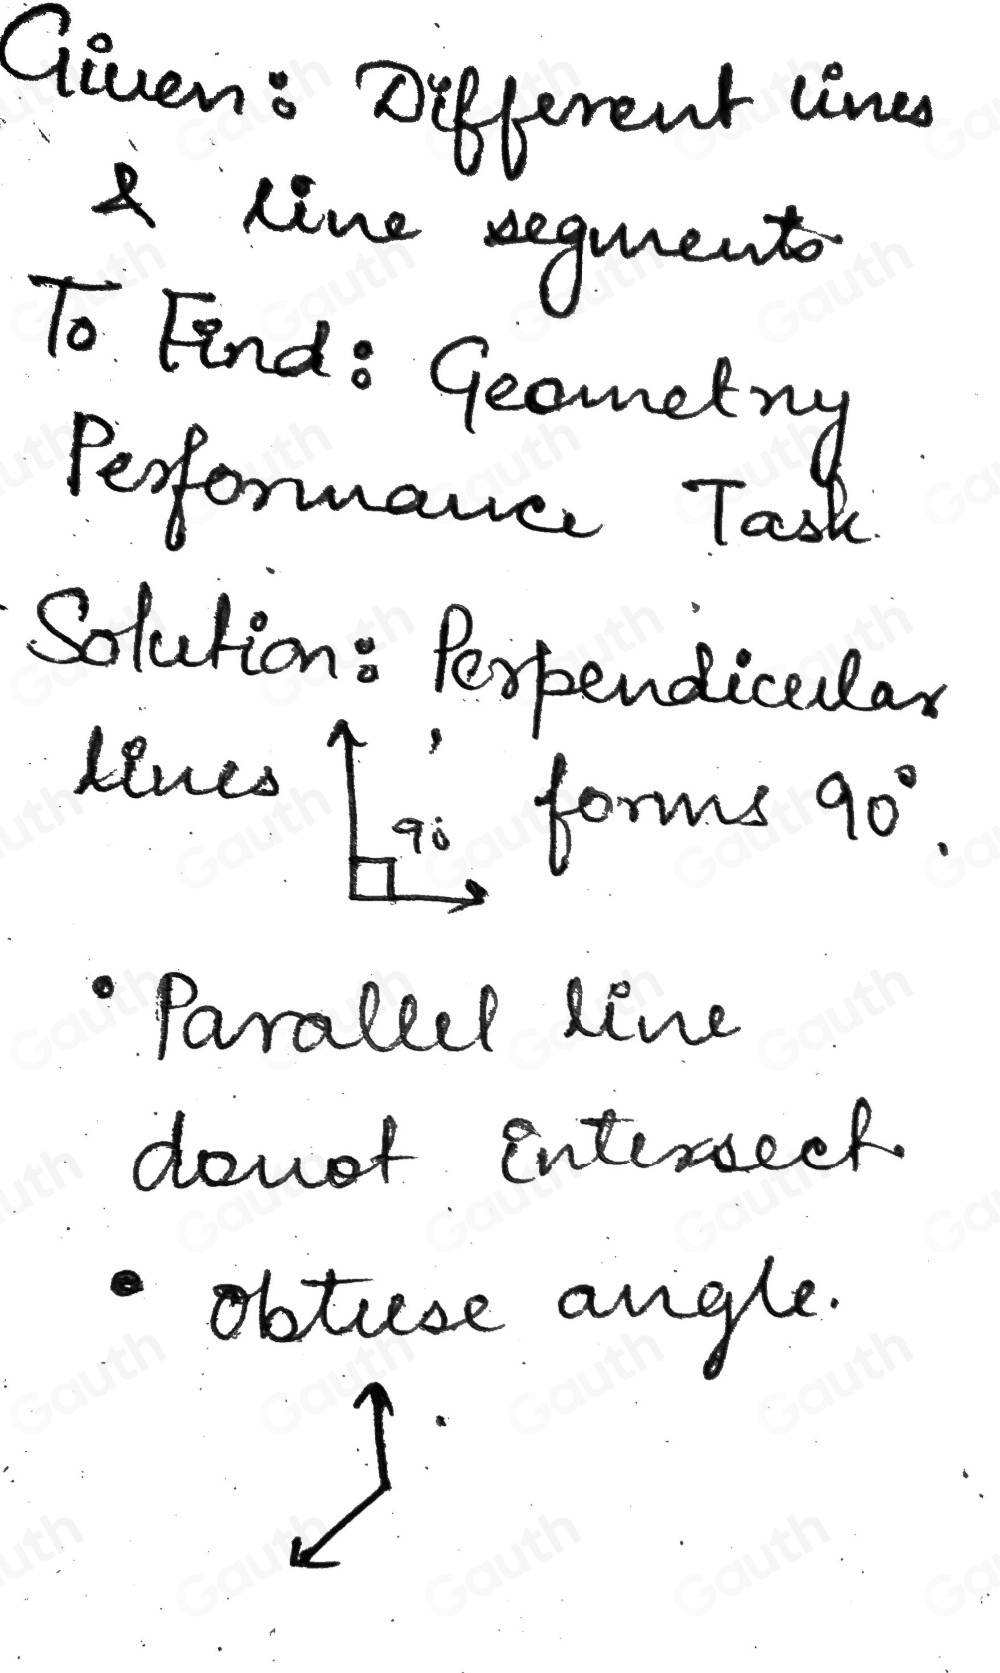 Given: Different lines
& line segments
To Find: Geometry
Performance Task.
Solution: Perpendicular
lines 90°, forms 90°.
• Parallel line
donot intersect.
• Obtuse angle.